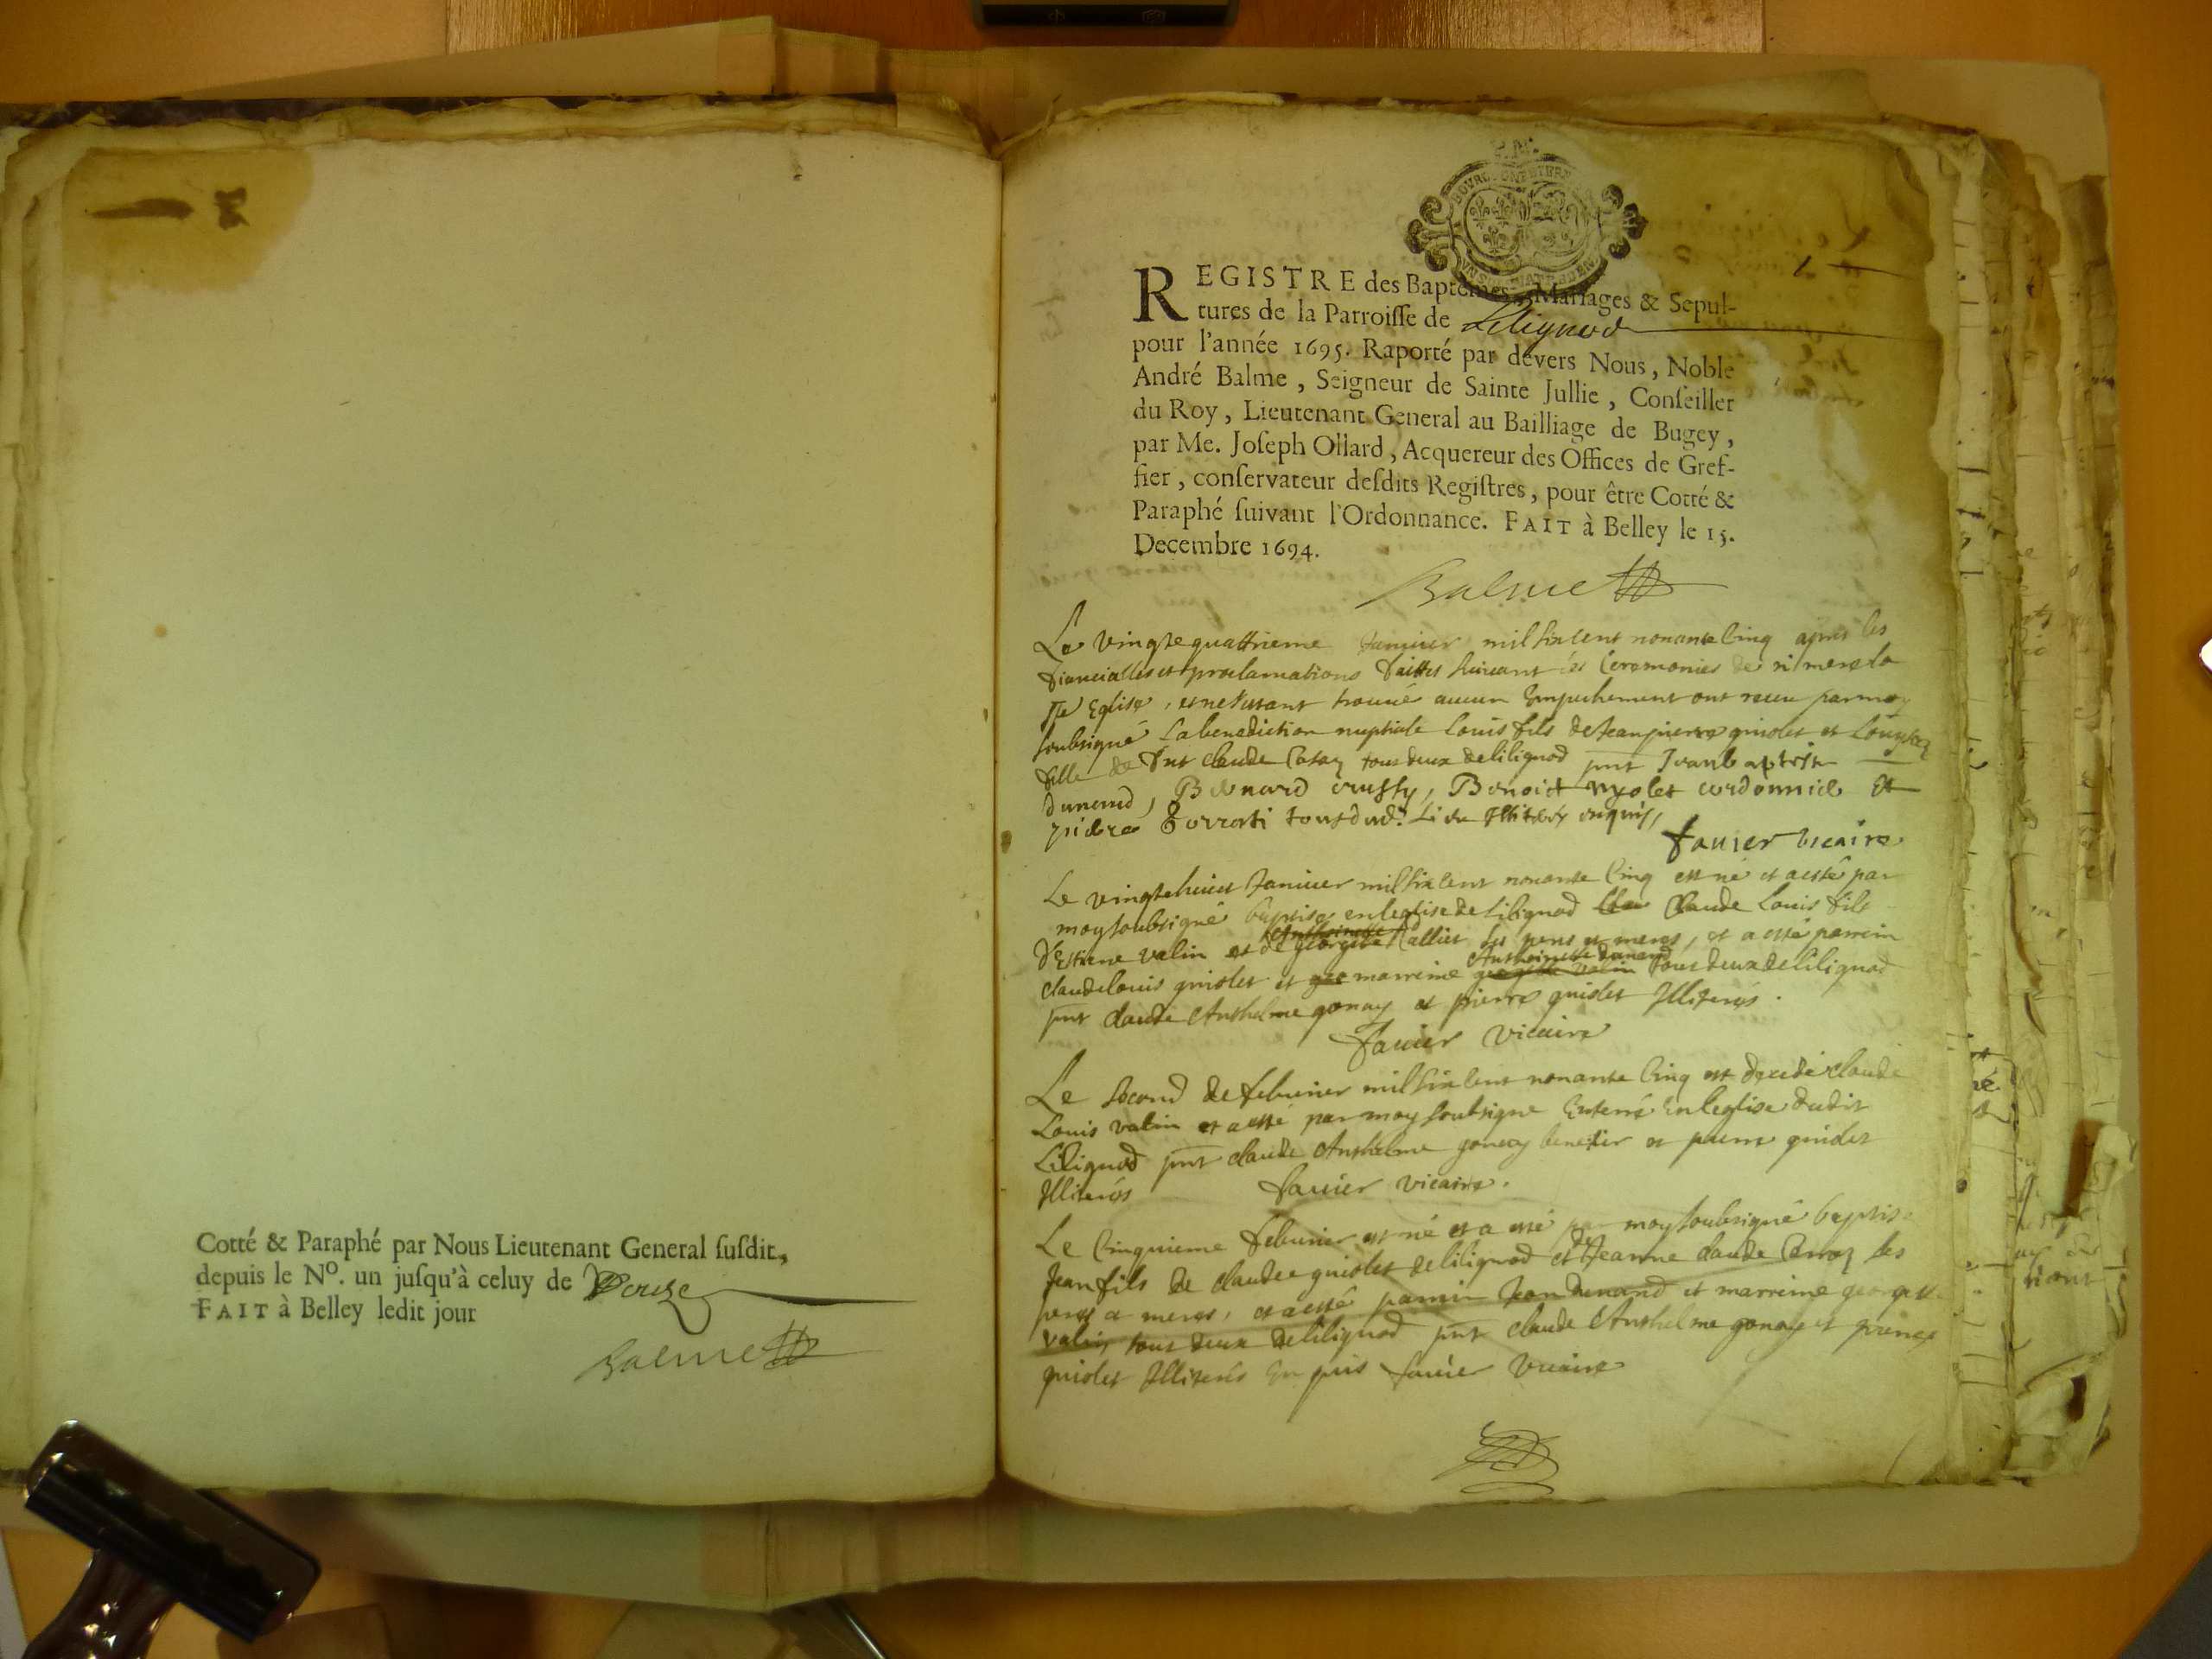 Cotté & Paraphé par Nous Lieutenant General suſdit,
depuis le Nº. un juſqu'à celuy de Douze
FAIT à Belley ledit jour
Balme
REGISTRE des Baptêmes, Mariages & Sepul-
tures de la Parroiſſe de Lilignod
pour l'année 1695. Raporté par devers Nous, Noble
André Balme, Seigneur de Sainte Jullie, Conſeiller
du Roy, Lieutenant General au Bailliage de Bugey,
par Me. Joſeph Ollard, Acquereur des Offices de Gref-
fier, conſervateur deſdits Regiſtres, pour être Cotté &
Paraphé ſuivant l'Ordonnance. FAIT à Belley le 15.
Decembre 1694.
Balme
Le vingtequattrieme Januier mil six cent nonante cinq apres les
fiancialles et proclamations faittes suivant les ceremonies de
Ste Eglise, et ne s'estant trouué aucun Empechement ont receu par moy
soubsigné la benediction nuptiale Louis fils de Jean pierre guiolet et
fille de fut claude tous deux de lilignod pnt Jean baptiste
dunand, Bernard Benoict cordonnier Et
tous dud. enquis,
fauier vicaire
Le vingtehuict Januier mil six cent nonante cinq est né et a esté par
moy soubsigné baptisé en leglise de lilignod Claude Louis fils
d'Estiene valin et de Anthoinette georgette Callier ses peres et meres, et a esté parrein
claude louis guiolet et marreine Anthoinette dunand georgette valin tous deux de lilignod
pnt claude Anthelme gonay et pierre guiolet Illiterés.
fauier vicaire
Le second de februier mil six cent nonante cinq est decedé claude
Louis valin et a esté par moy soubsigné Enterré en leglise dudit
Lilignod pnt claude Anthelme gonay et pierre guiolet
Illiterés fauier vicaire.
Le Cinquieme februier est né et a esté par moy soubsigné baptisé
Jean fils de claude guiolet de lilignod et de Jeanne claude ses
peres et meres, et a esté parrein Jean dunand et marreine georgette
valin, tous deux de lilignod pnt claude Anthelme gonay et pierre
guiolet Illiterés Enquis fauier vicaire